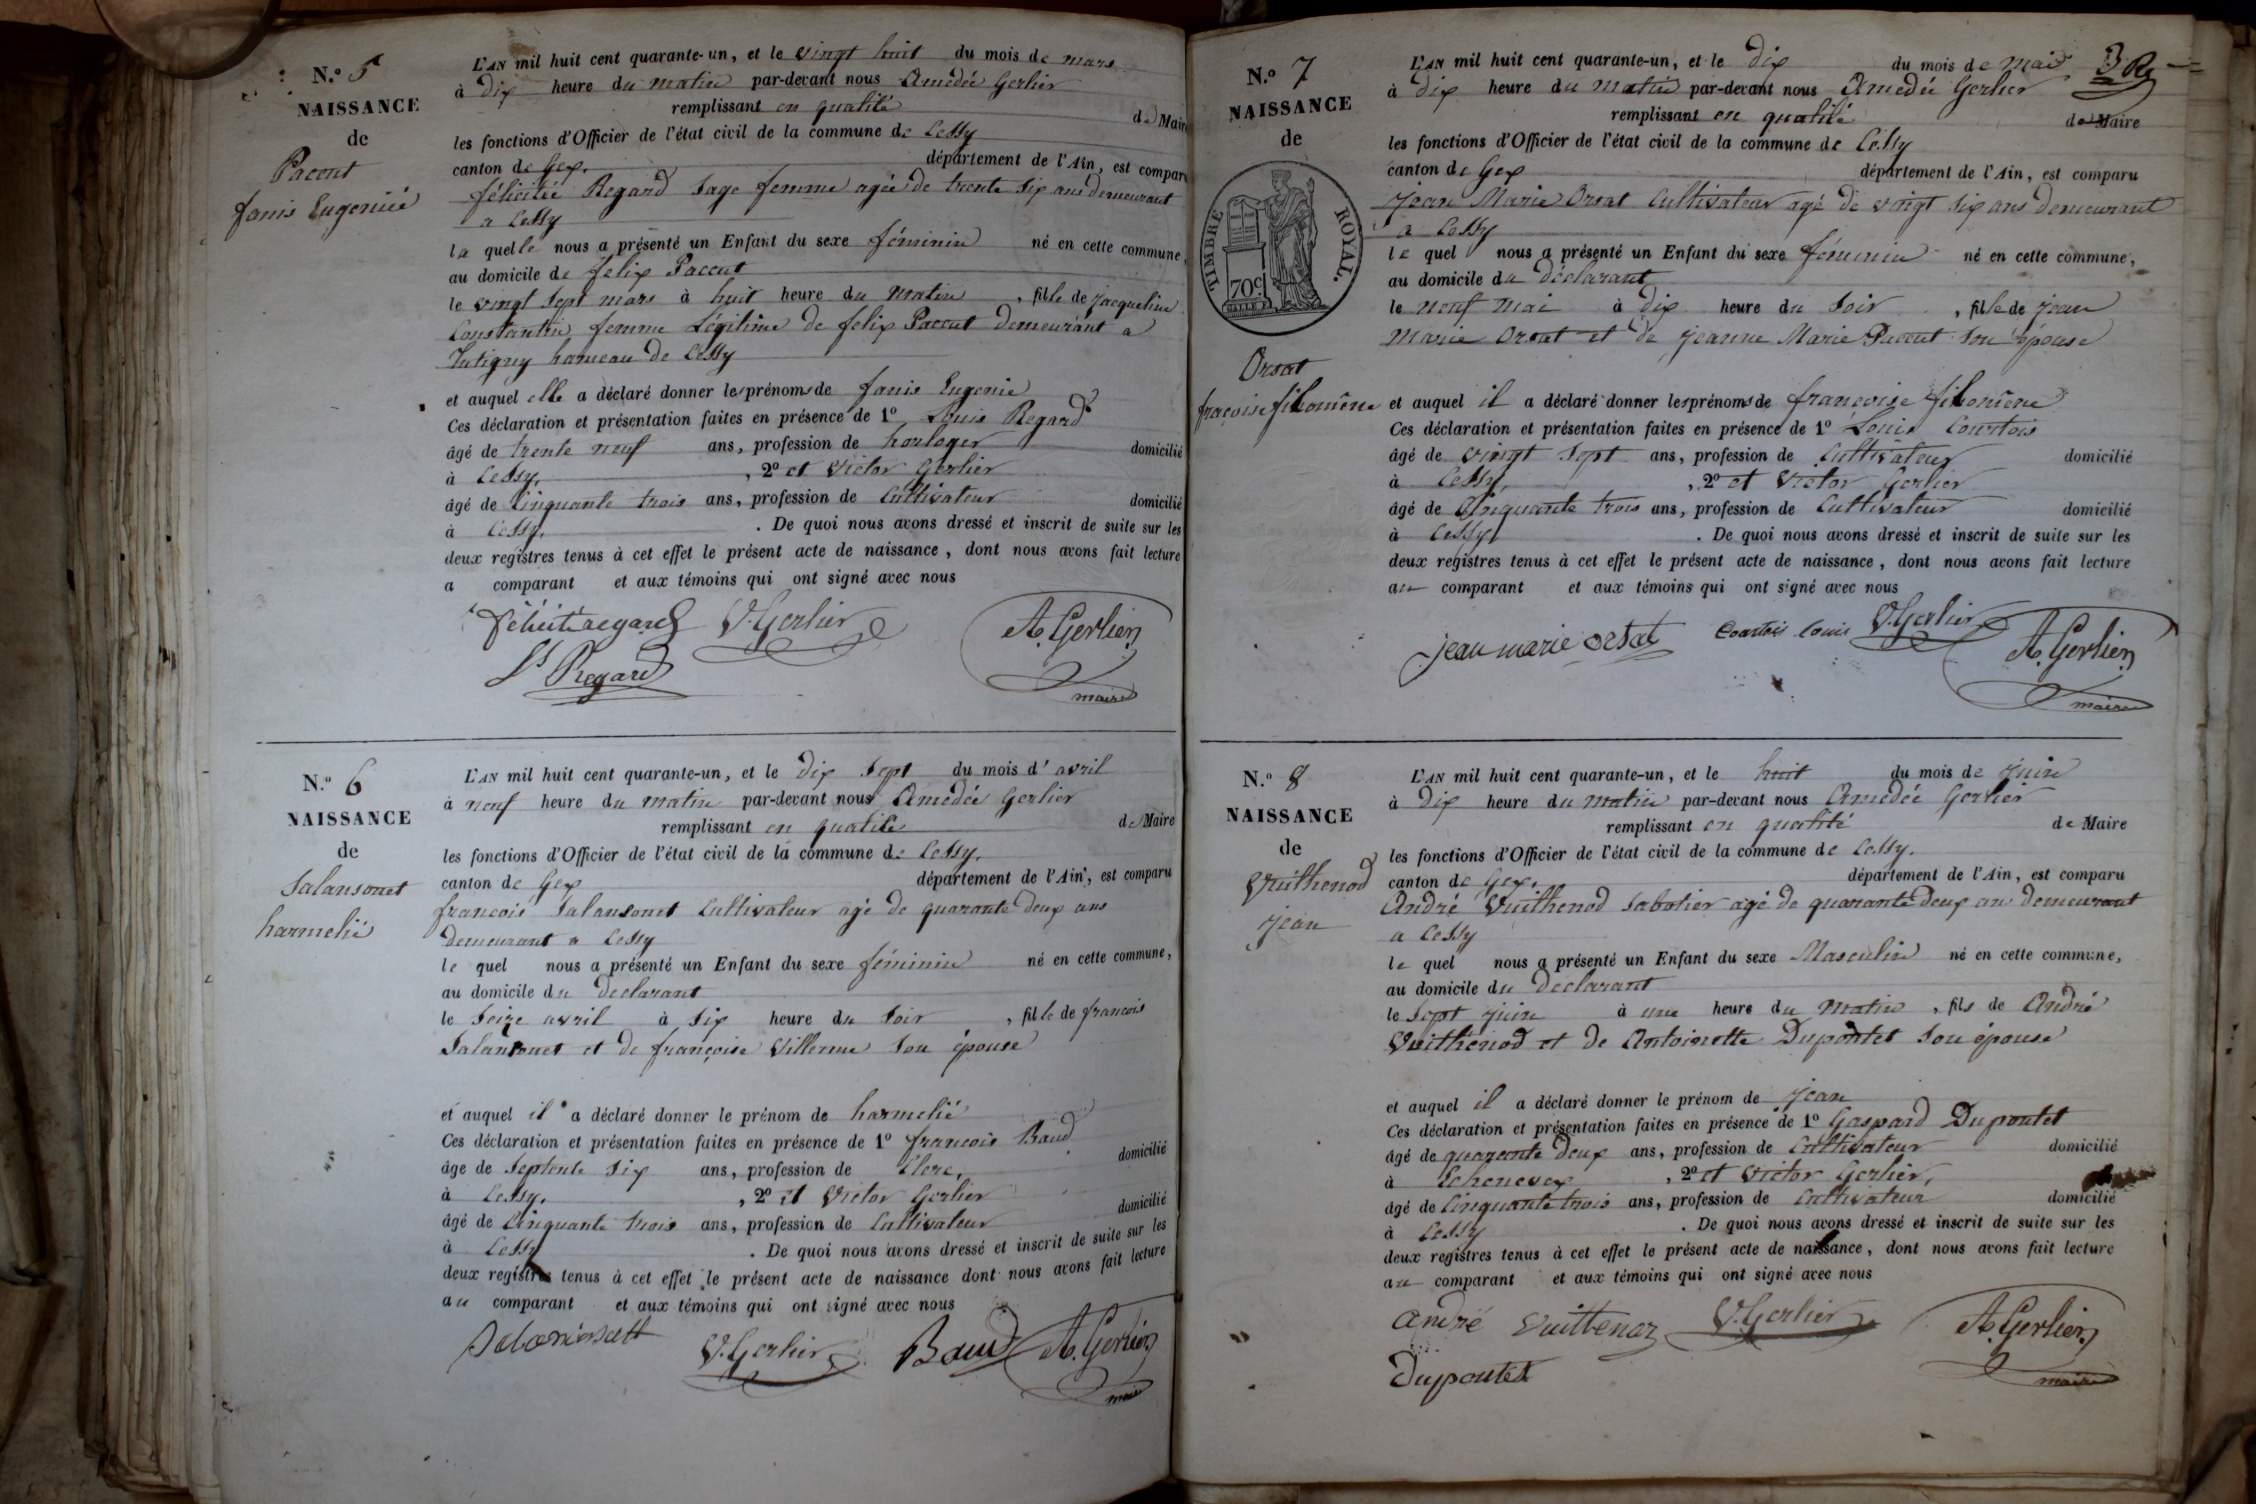 N.º 5
NAISSANCE
de
Paccut
fanis Eugenié
L'AN mil huit cent quarante-un, et le vingt huit du mois de mars
à dix heure du matin par-devant nous Amedée Gerlier
remplissant en qualité de Maire
les fonctions d'Officier de l'état civil de la commune de Cessy
canton de Gex. département de l'Ain, est comparu
félicitée Regard Sage femme agée de trente six ans demeurant
a Cessy
la quelle nous a présenté un Enfant du sexe féminin né en cette commune,
au domicile de felix Paccut
le vingt sept mars à huit heure du matin, fille de jacqueline
Constantin femme légitime de felix Paccut demeurant a
Tutigny hameau de Cessy
et auquel elle a déclaré donner les prénoms de fanis Eugenie
Ces déclaration et présentation faites en présence de 1º Louis Regard
âgé de trente neuf ans, profession de horloger domicilié
à Cessy, , 2º et Victor Gerlier
âgé de Cinquante trois ans, profession de Cultivateur domicilié
à Cessy. . De quoi nous avons dressé et inscrit de suite sur les
deux registres tenus à cet effet le présent acte de naissance, dont nous avons fait lecture
a comparant et aux témoins qui ont signé avec nous
félicité regard V. Gerlier A. Gerlier
Ls Regard maire
N.º 6
NAISSANCE
de
Salansonet
harmelié
L'AN mil huit cent quarante-un, et le dix sept du mois d'avril
à neuf heure du matin par-devant nous Amedée Gerlier
remplissant en qualité de Maire
les fonctions d'Officier de l'état civil de la commune de Cessy.
canton de Gex département de l'Ain, est comparu
francois Salansonet Cultivateur agé de quarante deux ans
Demeurant a Cessy
le quel nous a présenté un Enfant du sexe féminin né en cette commune,
au domicile du declarant
le Seize avril à six heure du soir, fille de francois
Salansonet et de françoise Villerme son épouse
et auquel il a déclaré donner le prénom de harmelié
Ces déclaration et présentation faites en présence de 1º francois Baud
âge de septente six ans, profession de Clerc, domicilié
à Cessy. , 2º et Victor Gerlier
âgé de Cinquante trois ans, profession de Cultivateur domicilié
à Cessy . De quoi nous avons dressé et inscrit de suite sur les
deux registres tenus à cet effet le présent acte de naissance dont nous avons fait lecture
au comparant et aux témoins qui ont signé avec nous
V. Gerlier Baud A. Gerlier
maire
3 R
N.º 7
NAISSANCE
de
TIMBRE ROYAL.
70c
Orsat
fraçoise filomène
L'AN mil huit cent quarante-un, et le dix du mois de mai
à dix heure du matin par-devant nous Amedée Gerlier
remplissant en qualité de Maire
les fonctions d'Officier de l'état civil de la commune de Cessy
canton de Gex département de l'Ain, est comparu
jean Marie Orsat Cultivateur agé de vingt six ans demeurant
a Cessy
le quel nous a présenté un Enfant du sexe féminin né en cette commune,
au domicile du déclarant
le neuf mai à dix heure du soir, fille de jean
Marie Orsat et de jeanne Marie Paccut son épouse
et auquel il a déclaré donner les prénoms de françoise filomène
Ces déclaration et présentation faites en présence de 1º Louis Courtois
âgé de vingt sept ans, profession de Cultivateur domicilié
à Cessy, , 2º et Victor Gerlier
âgé de Cinquante trois ans, profession de Cultivateur domicilié
à Cessy, . De quoi nous avons dressé et inscrit de suite sur les
deux registres tenus à cet effet le présent acte de naissance, dont nous avons fait lecture
au comparant et aux témoins qui ont signé avec nous
jean marie orsat Courtois louis V. Gerlier A. Gerlier
maire
N.º 8
NAISSANCE
de
Vuithenod
jean
L'AN mil huit cent quarante-un, et le huit du mois de juin
à dix heure du matin par-devant nous Amedée Gerlier
remplissant en qualité de Maire
les fonctions d'Officier de l'état civil de la commune de Cessy.
canton de Gex. département de l'Ain, est comparu
André Vuithenod Sabotier agé de quarante deux an demeurant
a Cessy
le quel nous a présenté un Enfant du sexe Masculin né en cette commune,
au domicile du declarant
le sept juin à une heure du matin, fils de André
Vuithenod et de Antoinette Dupontet son épouse
et auquel il a déclaré donner le prénom de jean
Ces déclaration et présentation faites en présence de 1º Gaspard Dupontet
âgé de quarante deux ans, profession de Cultivateur domicilié
à Echenevex , 2º et Victor Gerlier,
âgé de Cinquante trois ans, profession de Cultivateur domicilié
à Cessy . De quoi nous avons dressé et inscrit de suite sur les
deux registres tenus à cet effet le présent acte de naissance, dont nous avons fait lecture
au comparant et aux témoins qui ont signé avec nous
andré vuittenoz V. Gerlier A. Gerlier
Dupontet maire